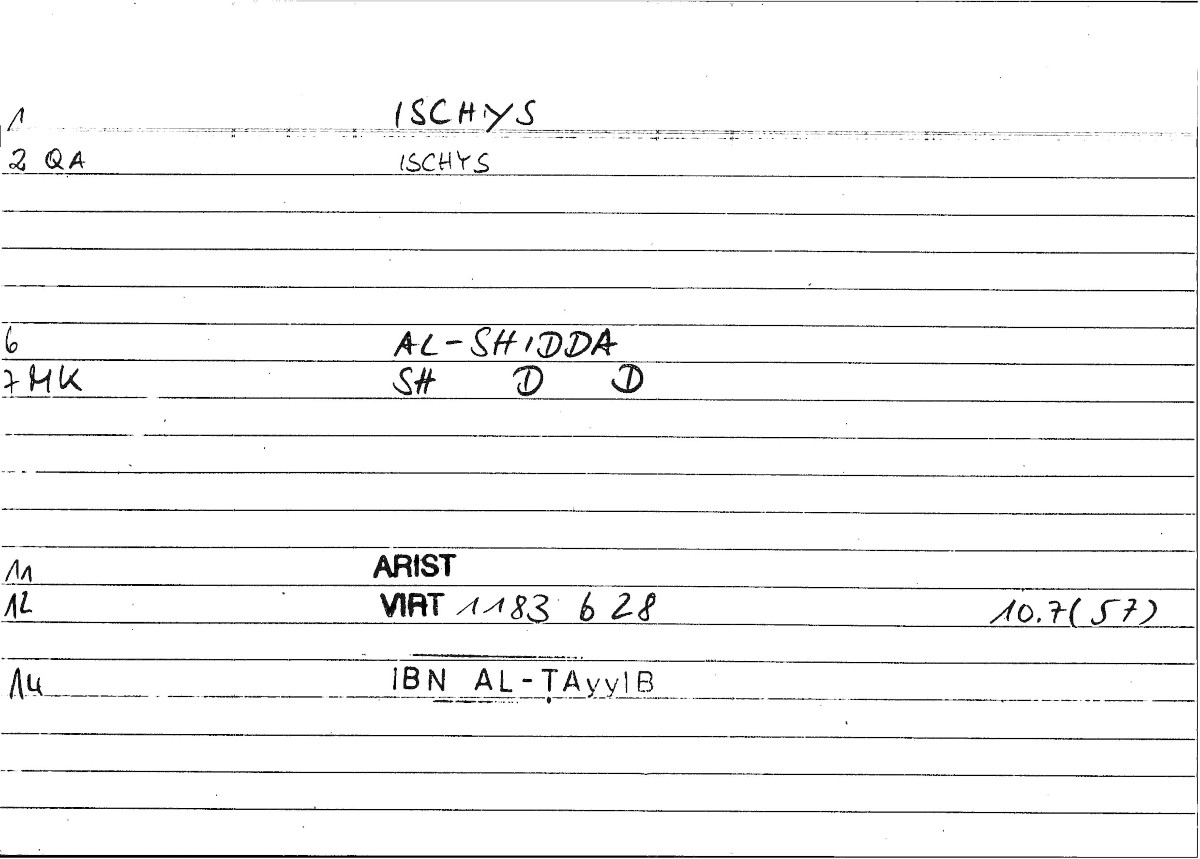 1 ISCHYS
2 QA ISCHYS
6 AL-SHIDDA
7 MK SH D D
11 ARIST
12 VIRT 1183 b 28 10.7(57)
14 IBN AL-ṬAyyIB